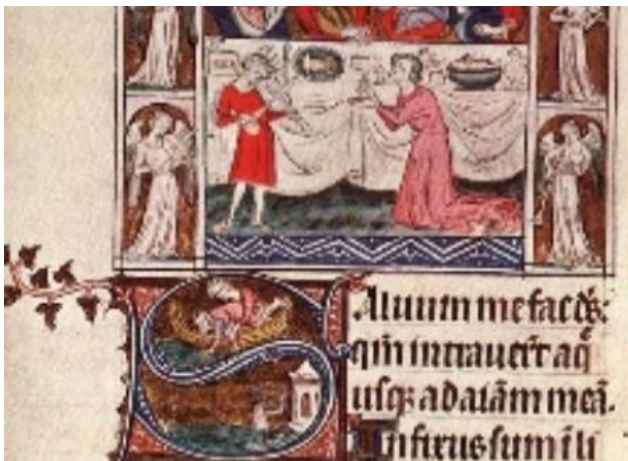 Saluum me fac d̄s:
qm̄ intrauer̄t aq̄
usq; ad aīam meā.
Infixus sum i li